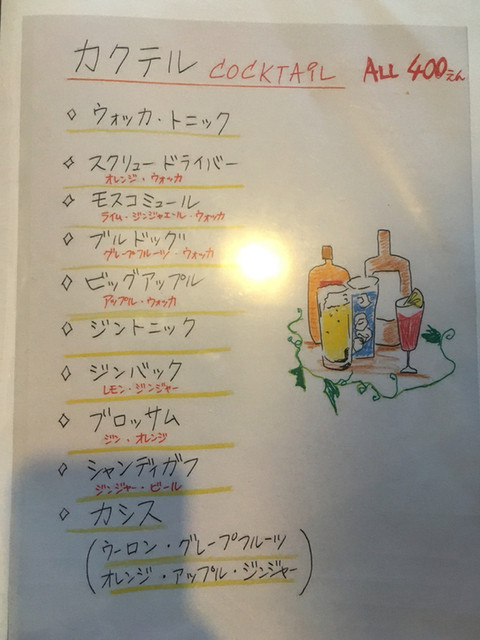 カクテル COCKTAIL ALL 400えん
◇ ウォッカ・トニック
◇ スクリュードライバー
オレンジ・ウォッカ
◇ モスコミュール
ライム・ジンジャエール・ウォッカ
◇ ブルドッグ
グレープフルーツ・ウォッカ
◇ ビッグアップル
アップル・ウォッカ
◇ ジントニック
◇ ジンバック
レモン・ジンジャー
◇ ブロッサム
ジン・オレンジ
◇ シャンディガフ
ジンジャー・ビール
◇ カシス
(ウーロン・グレープフルーツ
オレンジ・アップル・ジンジャー)